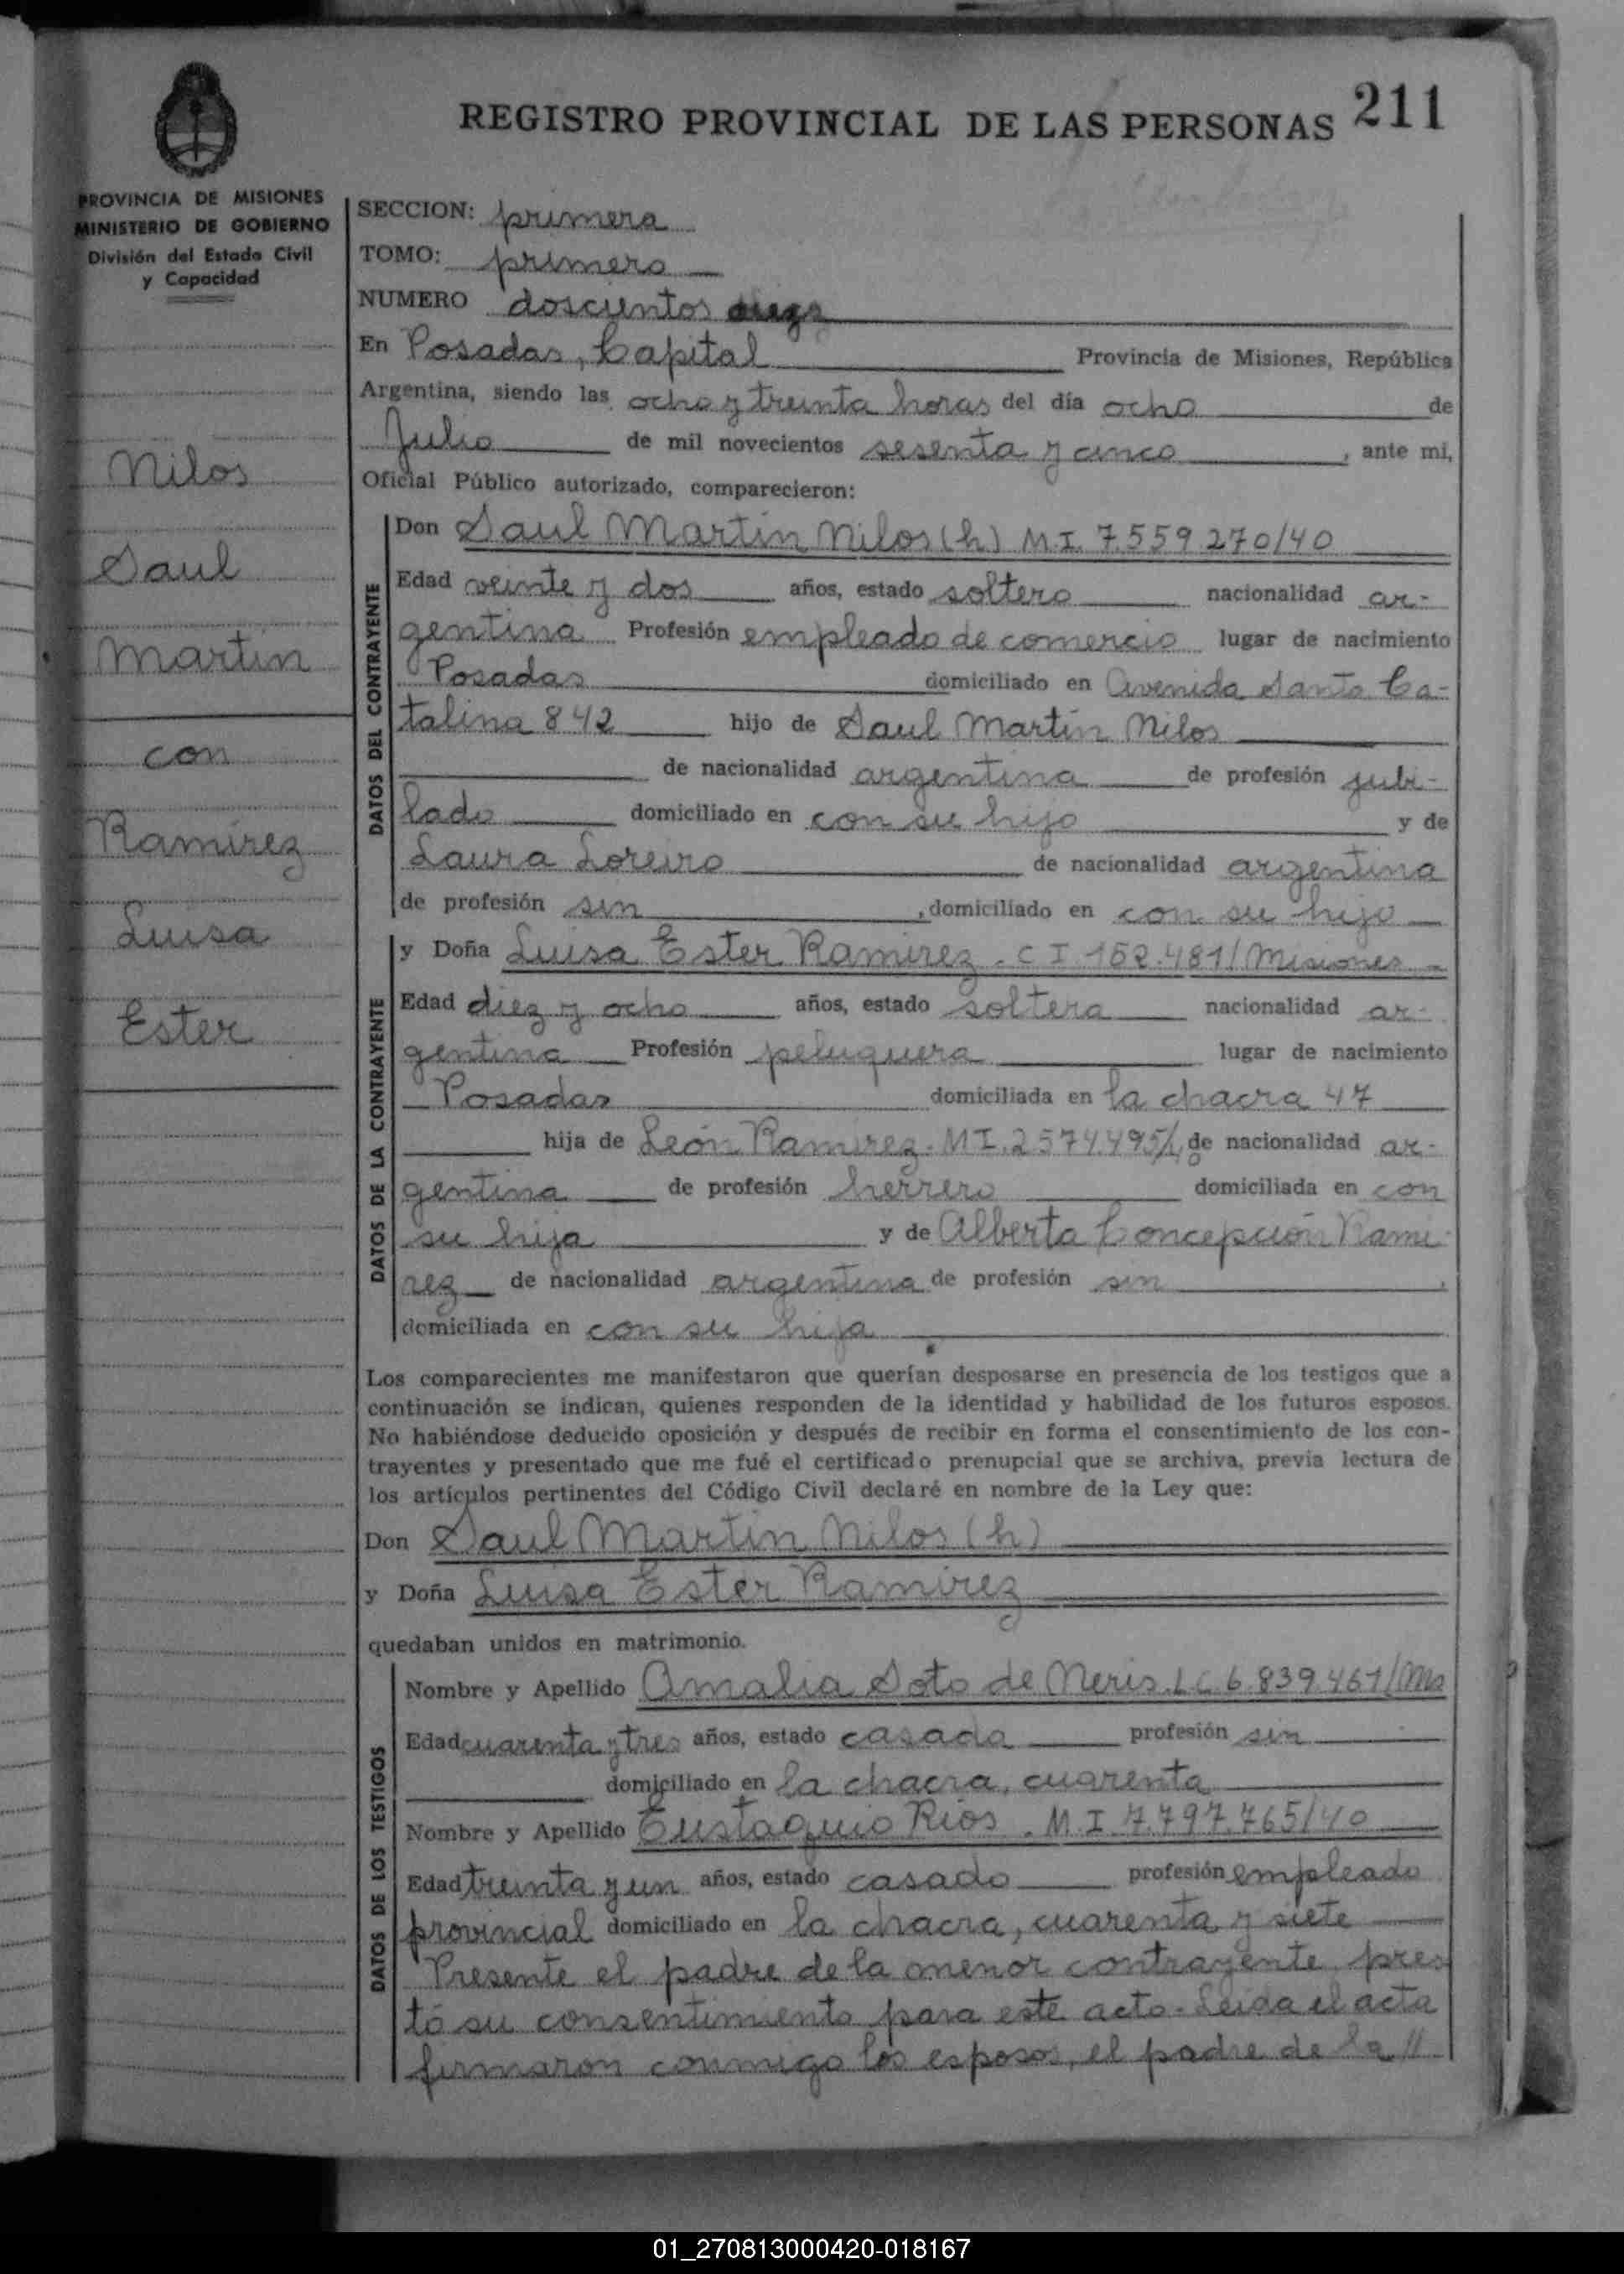 REGISTRO PROVINCIAL DE LAS PERSONAS 211
PROVINCIA DE MISIONES
MINISTERIO DE GOBIERNO
División del Estado Civil
y Capacidad
Nilos
Saul
Martin
con
Ramirez
Luisa
Ester
SECCION: primera
TOMO: primero
NUMERO doscientos
En Posadas, Capital Provincia de Misiones, República
Argentina, siendo las ocho y treinta horas del día ocho de
Julio de mil novecientos sesenta y cinco, ante mi,
Oficial Público autorizado, comparecieron:
DATOS DEL CONTRAYENTE
Don Saul Martin Nilos (h) M.I. 7.559.270/40
Edad veinte y dos años, estado soltero nacionalidad ar-
gentina Profesión empleado de comercio lugar de nacimiento
Posadas domiciliado en Avenida Santa Ca-
talina 842 hijo de Saul Martin Nilos
de nacionalidad argentina de profesión jubi-
lado domiciliado en con su hijo y de
Laura Loreiro de nacionalidad argentina
de profesión sin, domiciliado en con su hijo
DATOS DE LA CONTRAYENTE
y Doña Luisa Ester Ramirez - C I 152.481/Misiones
Edad diez y ocho años, estado soltera nacionalidad ar-
gentina Profesión peluquera lugar de nacimiento
Posadas domiciliada en la chacra 47
hija de León Ramirez - M I. 2574.495/ de nacionalidad ar-
gentina de profesión herrero domiciliada en con
su hija y de Alberta Concepción Rami-
rez de nacionalidad argentina de profesión sin,
domiciliada en con su hija
Los comparecientes me manifestaron que querían desposarse en presencia de los testigos que a
continuación se indican, quienes responden de la identidad y habilidad de los futuros esposos.
No habiéndose deducido oposición y después de recibir en forma el consentimiento de los con-
trayentes y presentado que me fué el certificado prenupcial que se archiva, previa lectura de
los artículos pertinentes del Código Civil declaré en nombre de la Ley que:
Don Saul Martin Nilos (h)
y Doña Luisa Ester Ramirez
quedaban unidos en matrimonio.
DATOS DE LOS TESTIGOS
Nombre y Apellido Amalia Soto de Neris L C 6.839.461/Ms
Edad cuarenta y tres años, estado casada profesión sin
domiciliado en la chacra, cuarenta
Nombre y Apellido Eustaquio Rios. M. I 7.797.765/40
Edad treinta y un años, estado casado profesión empleado
provincial domiciliado en la chacra, cuarenta y siete
Presente el padre de la menor contrayente pres
tó su consentimiento para este acto - Leida el acta
firmaron conmigo los esposos, el padre de la //
01_270813000420-018167